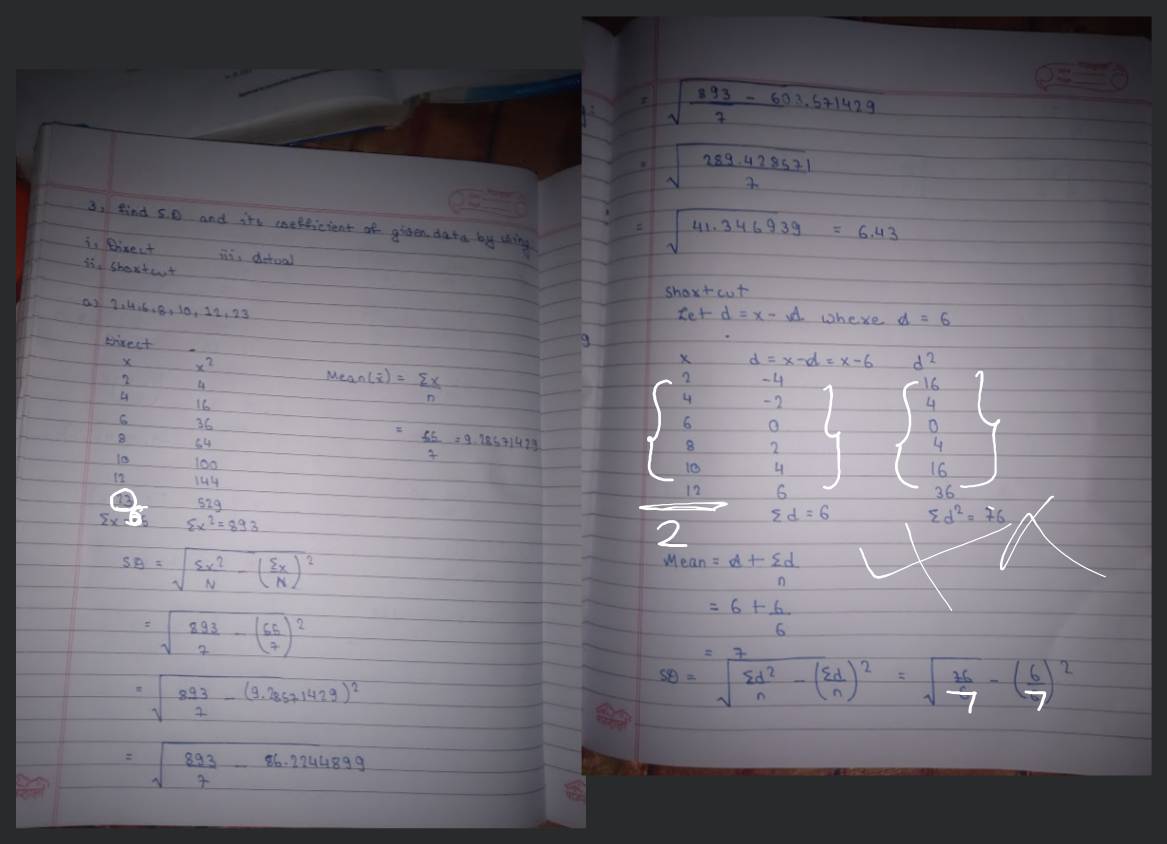 3, find S.D and its coefficient of given data by using
i, Direct iii, Actual
ii, Shortcut
a) 2,4,6,8,10,12,23
Direct
x x²
2 4
4 16
6 36
8 64
10 100
12 144
23 529
Σx = 65 Σx² = 893
Mean(x̄) = Σx/n
= 65/7 = 9.28571429
SD = √(Σx²/N - (Σx/N)²)
= √(893/7 - (65/7)²)
= √(893/7 - (9.28571429)²)
= √(893/7 - 86.2244899)
= √(893/7 - 603.571429)
= √(289.428571/7)
= √41.346939 = 6.43
Shortcut
Let d = x - A where A = 6
x d = x-A = x-6 d²
2 -4 16
4 -2 4
6 0 0
8 2 4
10 4 16
12 6 36
2 Σd = 6 Σd² = 76
Mean = A + Σd/n
= 6 + 6/6
= 7
SD = √(Σd²/n - (Σd/n)²) = √(76/7 - (6/7)²)